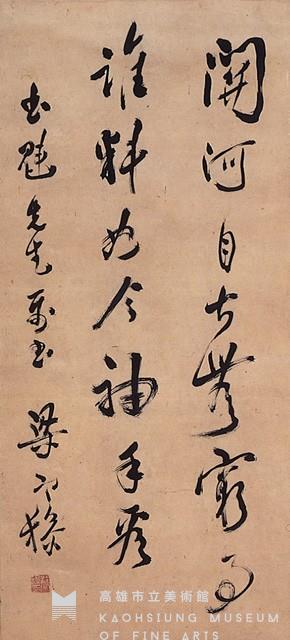 關河自古無窮事
誰料如今袖手看
書魁先生屬書
梁啟超
高雄市立美術館
KAOHSIUNG MUSEUM
OF FINE ARTS